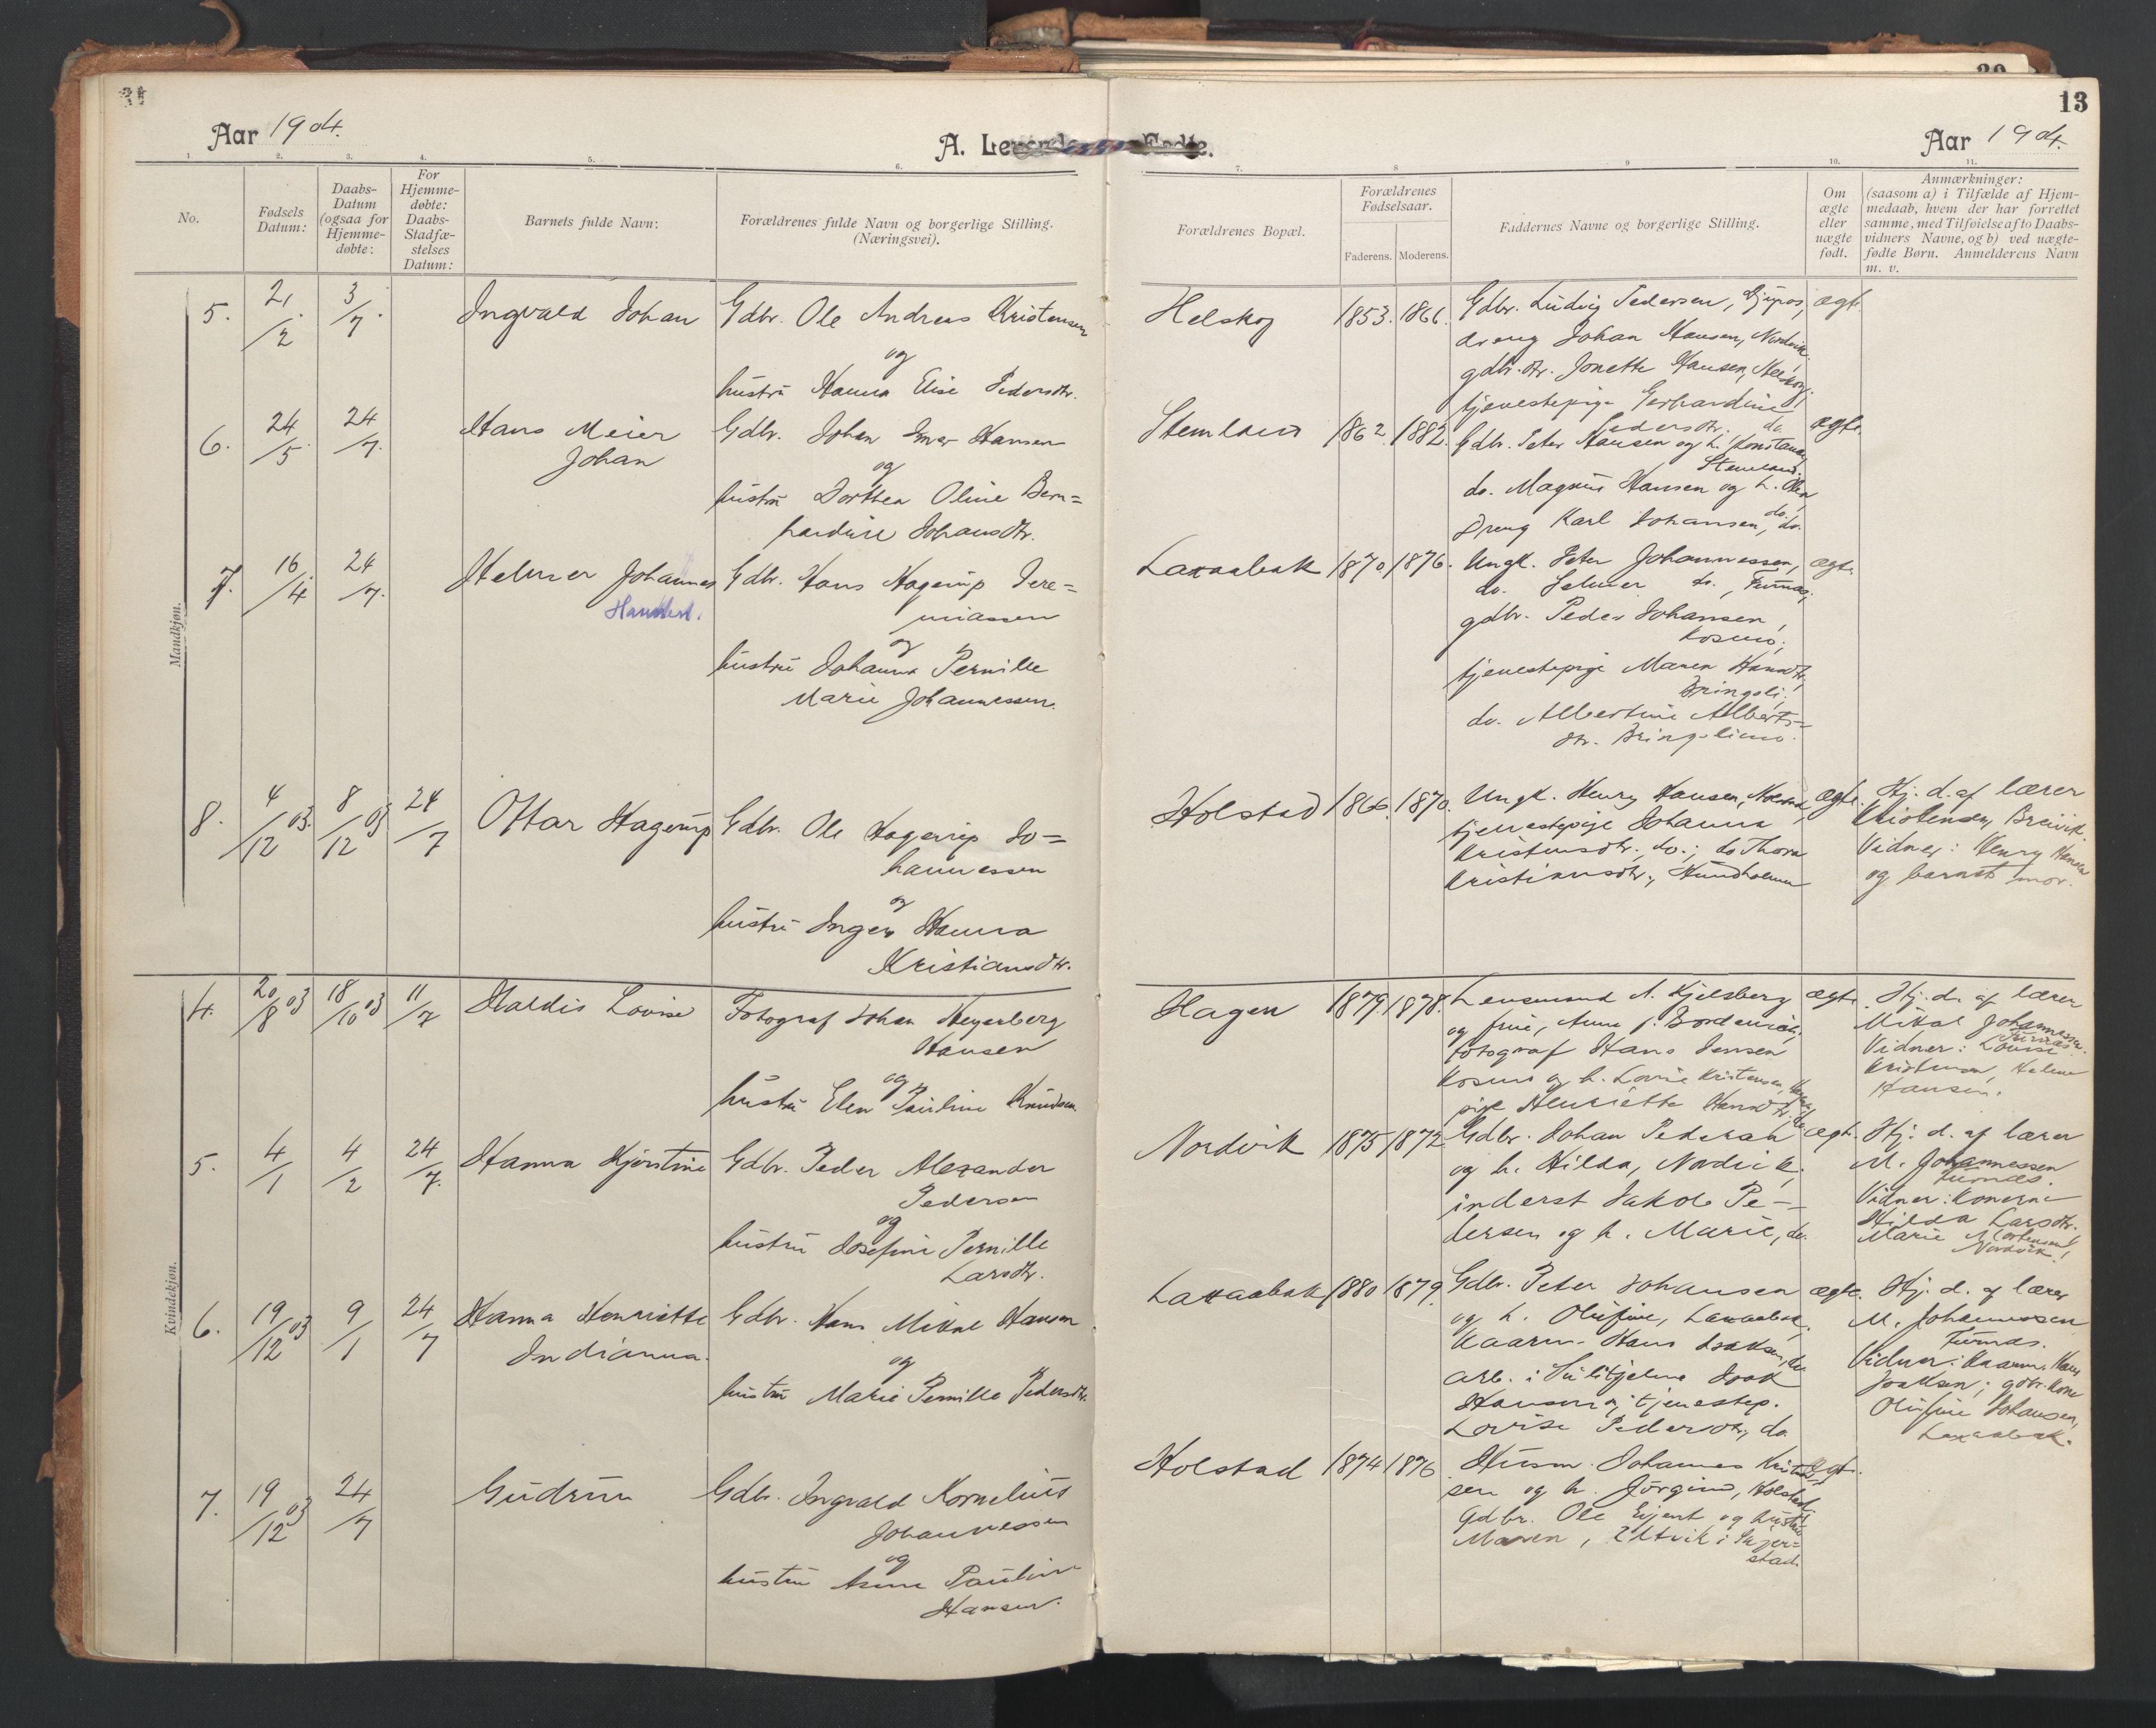 Aar 1904.
A. Levende Fødte.
13
Aar 1904.
1. 2. 3. 4. 5. 6. 7. 8 9 10. 11.
No.
Fødsels Datum:
Daabs-Datum (ogsaa for Hjemme-døbte:
For Hjemme-døbte: Daabs-Stadfæ-stelses Datum:
Barnets fulde Navn:
Forældrenes fulde Navn og borgerlige Stilling.
(Næringsvei).
Forældrenes Bopæl.
Forældrenes Fødselsaar.
Faderens. Moderens.
Faddernes Navne og borgerlige Stilling.
Om ægte eller uægte født.
Anmærkninger:
(saasom a) i Tilfælde af Hjem-
medaab, hvem der har forrettet
samme, med Tilføielse af to Daabs-
vidners Navne, og b) ved uægte-
fødte Børn. Anmelderens Navn
m. v.
Mandkjøn.
5. 21/2 3/7. Ingvald Johan
Gdbr. Ole Andreas Kristensen
og
hustru Hanna Elise Pedersdtr.
Helskog 1853. 1866.
Gdbr. Ludvig Pedersen,
dreng Johan Hansen, Nordvik.
gdbr.dtr. Jonette Hansen, Helskog,
tjenestepige Gerhardine
Pedersdtr. do.
ægte.
6. 24/5. 24/7. Hans Meier
Johan
Gdbr. Johan Hansen
og
hustru Dorthea Oline Bern=
hardine Johansdtr.
Stemland 1862. 1882.
Gdbr. Peter Hansen og h. Konstanse
Stemland.
do. Magnus Hansen og h.
do.
Dreng Karl Johansen, do.
ægte.
7. 16/4. 24/7. Helmer Johannes
Gdbr. Hans Hagerup Jere=
miassen
og
hustru Johanna Pernille
Marie Johannessen.
Laxaabak 1870. 1876.
Ungk. Peter Johannessen,
do. Selmer do., Furnæs;
gdbr. Peder Johansen,
Kosmo;
tjenestepige Maren Hansdtr.
Bringsli;
do. Albertine Alberts-
dtr. Bringslimo.
ægte.
8. 4/12 03. 8/12 03 24/7 Ottar Hagerup
Gdbr. Ole Hagerup Jo=
hannessen
og
hustru Inger Hanna
Kristiansdtr.
Holstad 1866. 1870.
Ungk. Henry Hansen, Holstad,
tjenestepige Johanna
Kristensdtr., do.; do Thora
Kristiansdtr., Hundholmen
ægte.
Hj. d. af lærer
Kristensen, Breivik.
Vidner: Henry Hansen
og barnets mor.
Kvindekjøn.
4. 20/8 03 18/10 03 11/7 Haldis Lovise
Fotograf Johan Heyerberg
Hansen
og
hustru Elen Pauline Knudsen
Hagen 1879. 1878.
Lensmand A. Kjelsberg
og frue, Anna f. Bordevich,
fotograf Hans Jensen
Kosmo og h. Lovise Kristensen,
pige Henriette Hansdtr.
ægte.
Hj. d. af lærer
Mikal Johannessen
Furnæs.
Vidner: Lovise
Kristensen, Helene
Hansen.
5. 4/1 4/2 24/7. Hanna Kjerstine
Gdbr. Peder Alexander
Pedersen
og
hustru Josefine Pernille
Larsdtr.
Nordvik 1875 1872
Gdbr. Johan Pedersen
og h. Hilda, Nordvik;
inderst Jakob Pe-
dersen og h. Marie, do.
ægte.
Hj. d. af lærer
M. Johannessen
Furnæs.
Vidner: Konerne
Hilda Larsdtr.
Marie Mortensen,
Nordvik.
6. 19/12 03 9/1 24/7 Hanna Henriette
Indianna.
Gdbr. Hans Mikal Hansen
og
hustru Marie Pernille Pedersdtr.
Laxaabak 1880 1879.
Gdbr. Peter Johansen
og h. Olufine, Laxaabak,
Kaarm. Hans Isaksen, do
arb. i Sulitjelma Isak
Hansen; tjenestep.
Lovise Pedersdtr, do
ægte.
Hj. d. af lærer
M. Johannessen
Furnæs.
Vidner: Kaarm. Hans
Isaksen; gdbr. kone
Olufine Johansen,
Laxaabak.
7. 19/12 03 24/7 Gudrun
Gdbr. Ingvald Kornelius
Johannessen
og
hustru Anna Pauline
Hansen.
Holstad 1874 1876
Husm. Johannes Kristen-
sen og h. Jørgine, Holstad;
Gdbr. Ole Ejent og hustru
Maren, Eltvik i Skjer=
stad.
ægte.